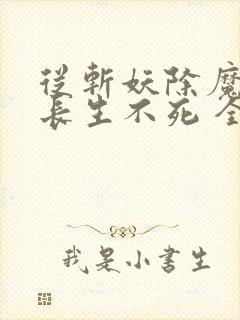 從斬妖除魔
長生不死 全
我是小書生